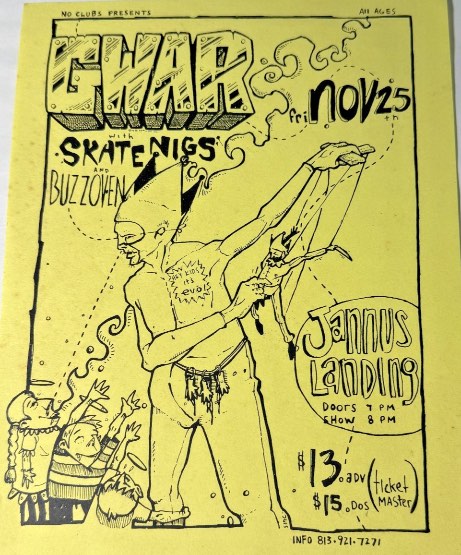 NO CLUBS PRESENTS
All AGES
GWAR
fri NOV 25 th
with
SKATENIGS
AND
BUZZOVEN
HEY KIDS
IT'S
evol
Jannus
Landing
DOORS 7 PM
SHOW 8 PM
$13.0 ADV
$15. DOS
(ticket
MASTER)
INFO 813-921-7271